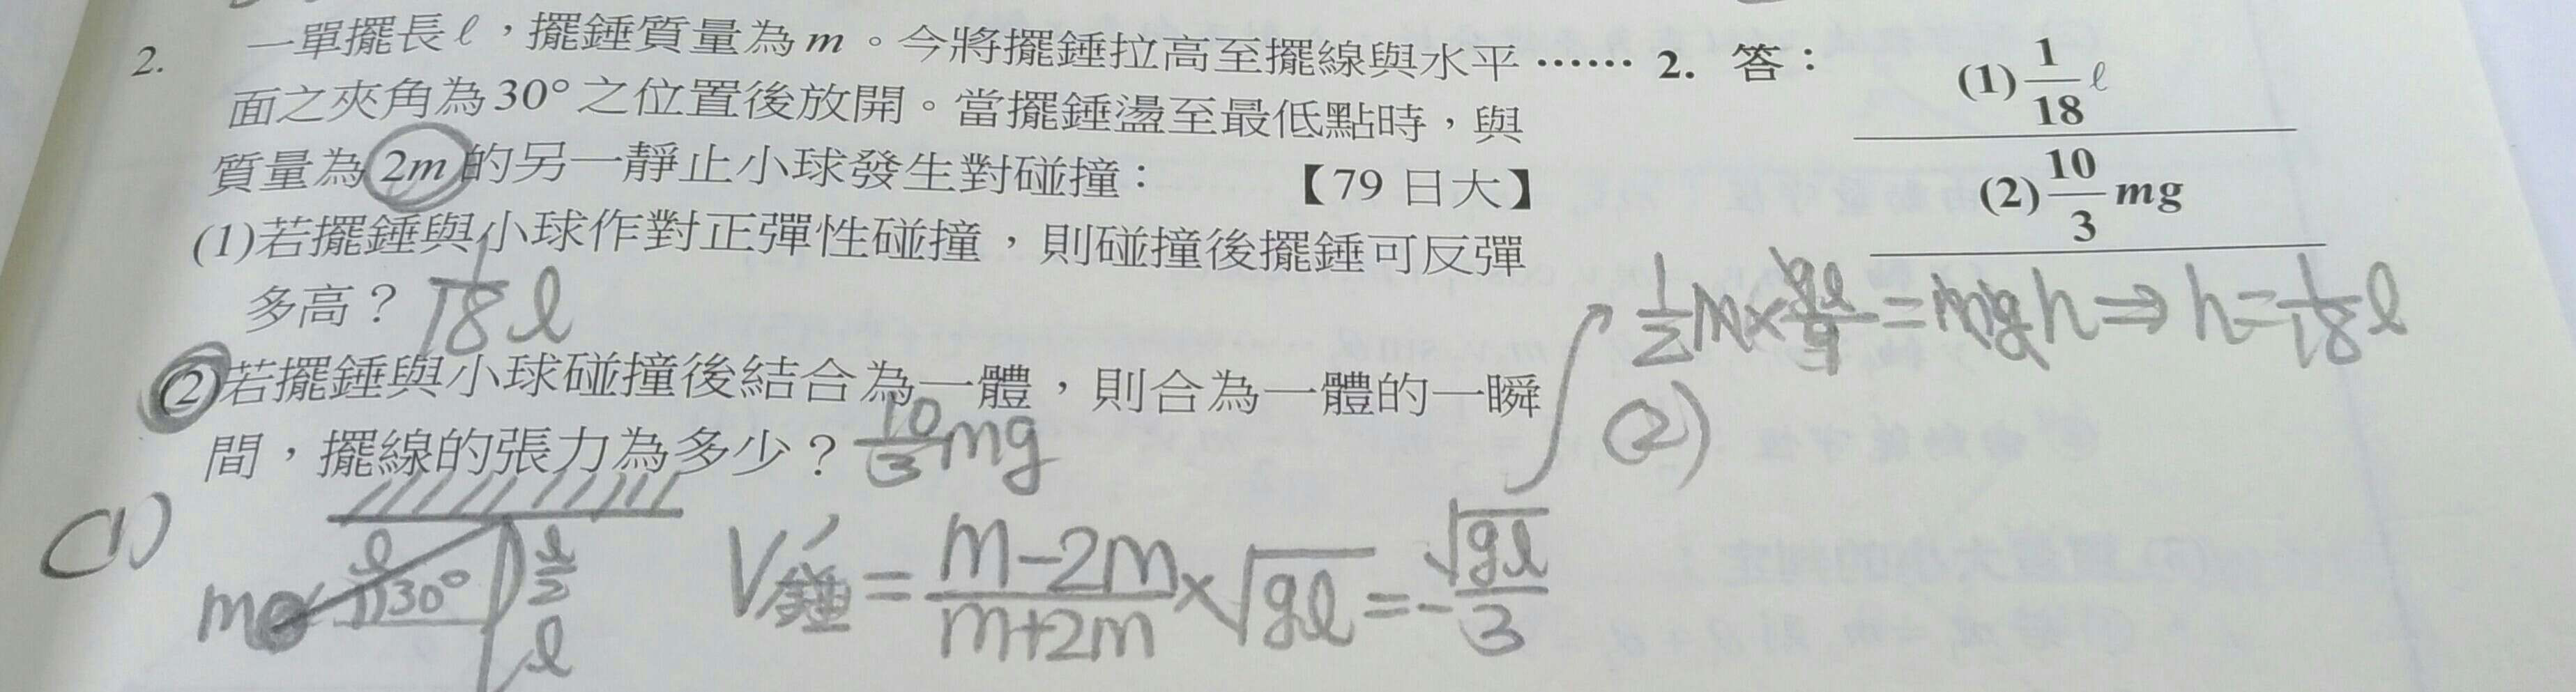 2. 一單擺長ℓ，擺錘質量為m。今將擺錘拉高至擺線與水平 …… 2. 答：
面之夾角為30°之位置後放開。當擺錘盪至最低點時，與
質量為2m的另一靜止小球發生對碰撞： 【79 日大】
(1)若擺錘與小球作對正彈性碰撞，則碰撞後擺錘可反彈
多高？ 1/18 ℓ
(2)若擺錘與小球碰撞後結合為一體，則合為一體的一瞬
間，擺線的張力為多少？ 10/3 mg
(1) 1/18 ℓ
(2) 10/3 mg
1/2 m × gℓ/9 = mgh ⇒ h = 1/18 ℓ
(2)
(1)
ℓ
m 30° ℓ/2
ℓ
V錘' = (m-2m)/(m+2m) × √gℓ = -√gℓ/3